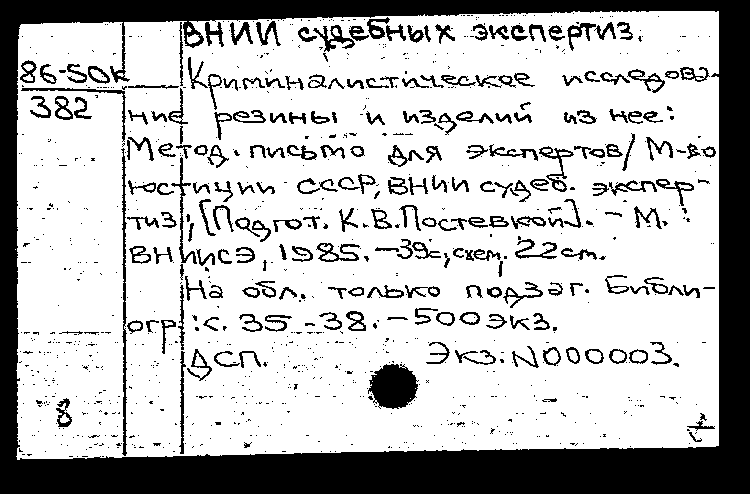 ВНИИ судебных экспертиз.
86-50к
382
Криминалистическое исследова-
ние резины и изделий из нее:
Метод. письмо для экспертов/ М-во
юстиции СССР, ВНИИ судеб. экспер-
тиз; [Подгот. К.В.Постевкой]. - М.:
ВНИИСЭ, 1985. -39с., схем. 22 см.
На обл. только подзаг. Библи-
огр.: с. 35 -38. -500 экз.
ДСП. Экз. N000003.
8